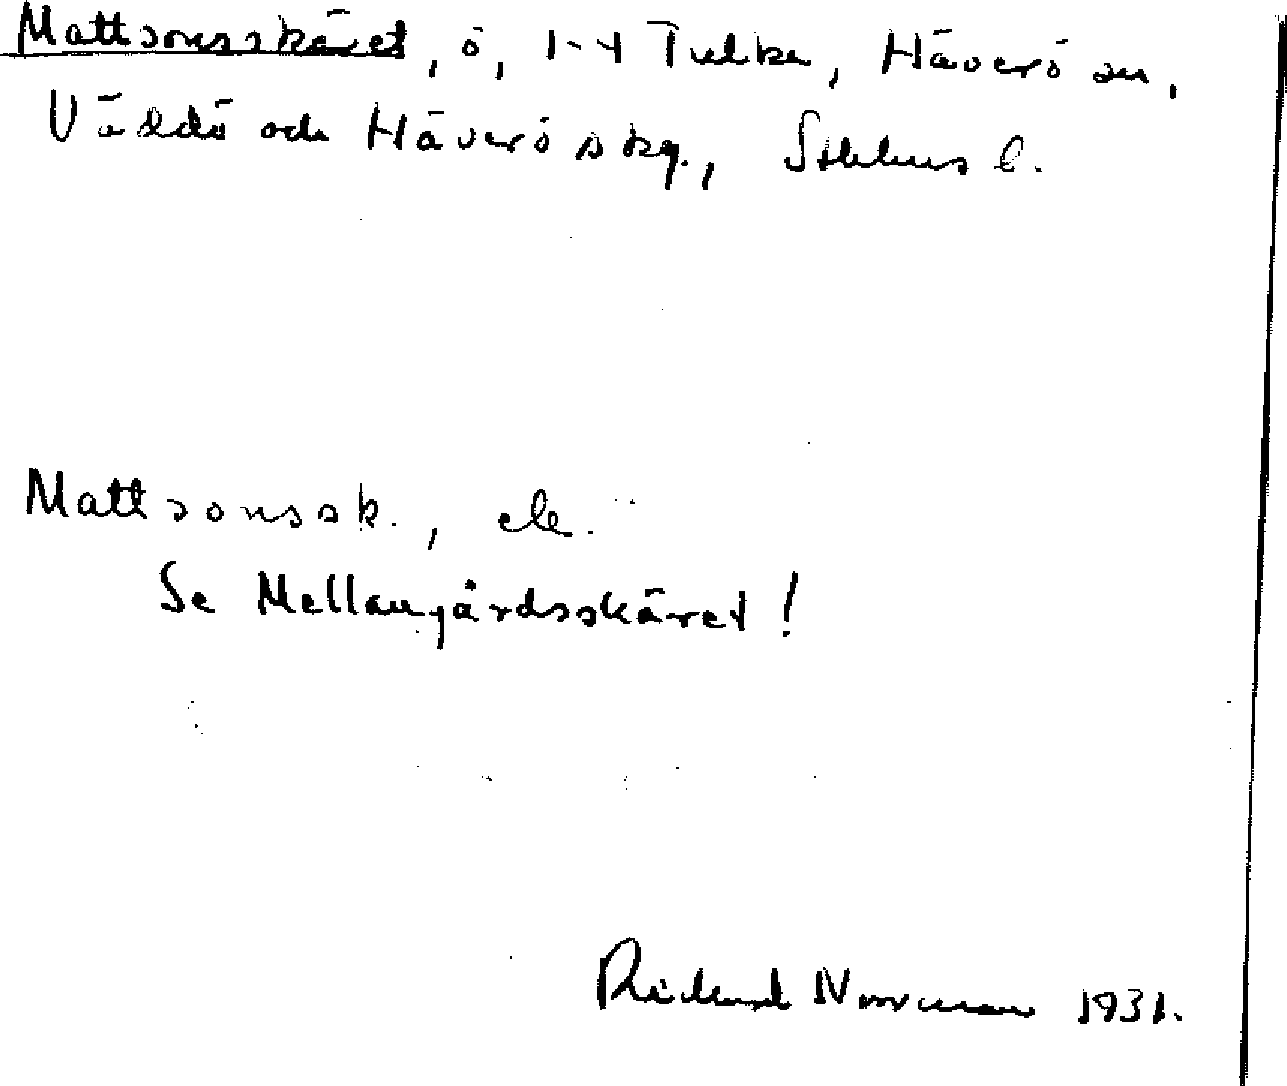 Mattsonsskäret, ö, 1-4 Tulka, Häverö sn,
Väddö och Häverö skg., Sthlms l.
Mattsonssk., ek.
Se Mellangårdsskäret!
Rickard Norman 1931.